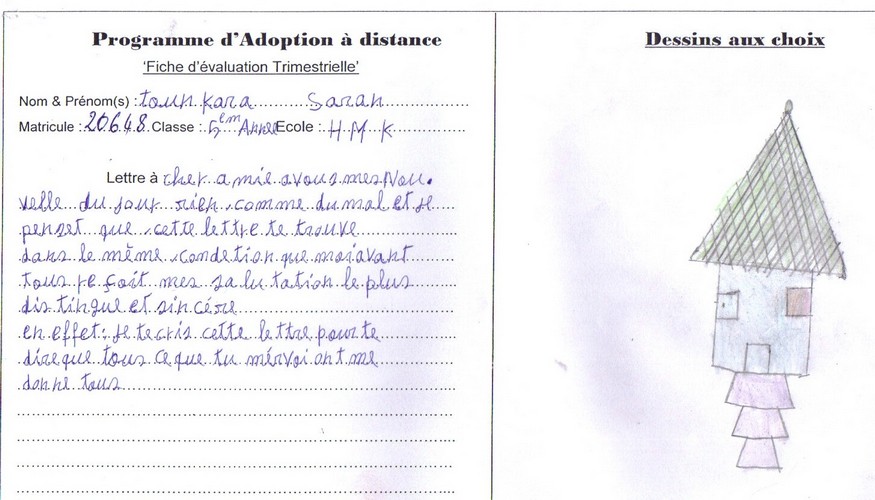 Programme d'Adoption à distance
'Fiche d'évaluation Trimestrielle'
Nom & Prénom(s) : toun kara Saran
Matricule : 20648 Classe : 5em Année Ecole : H M K
Lettre à cher amie a vous mes Nou.
velle du jour rien comme du mal et je
penset que cette lettre te trouve
dans le même condetion que moi avant
tous re çoit mes sa lu tation le plus
dis tingue et sincére
en effet: je tecris cette lettre pour te
dire que tous ce que tu mérvoi ont me
donne tous
Dessins aux choix